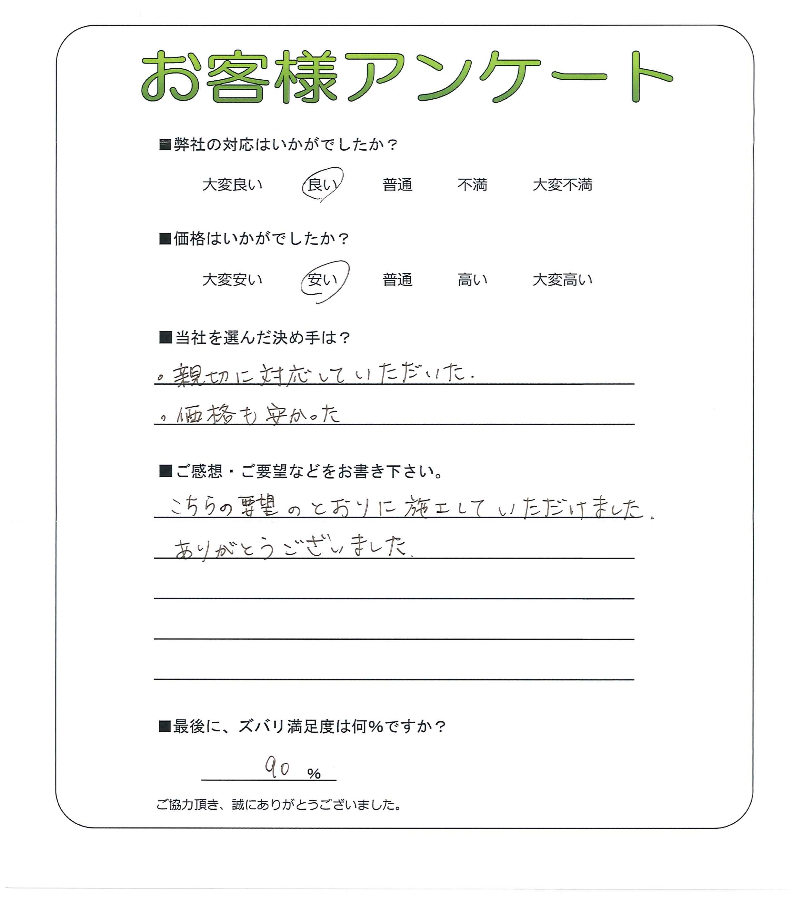 お客様アンケート
■弊社の対応はいかがでしたか？
大変良い 良い 普通 不満 大変不満
■価格はいかがでしたか？
大変安い 安い 普通 高い 大変高い
■当社を選んだ決め手は？
。親切に対応していただいた.
。価格も安かった
■ご感想・ご要望などをお書き下さい。
こちらの要望のとおりに施工していただけました.
ありがとうございました.
■最後に、ズバリ満足度は何%ですか？
90 %
ご協力頂き、誠にありがとうございました。